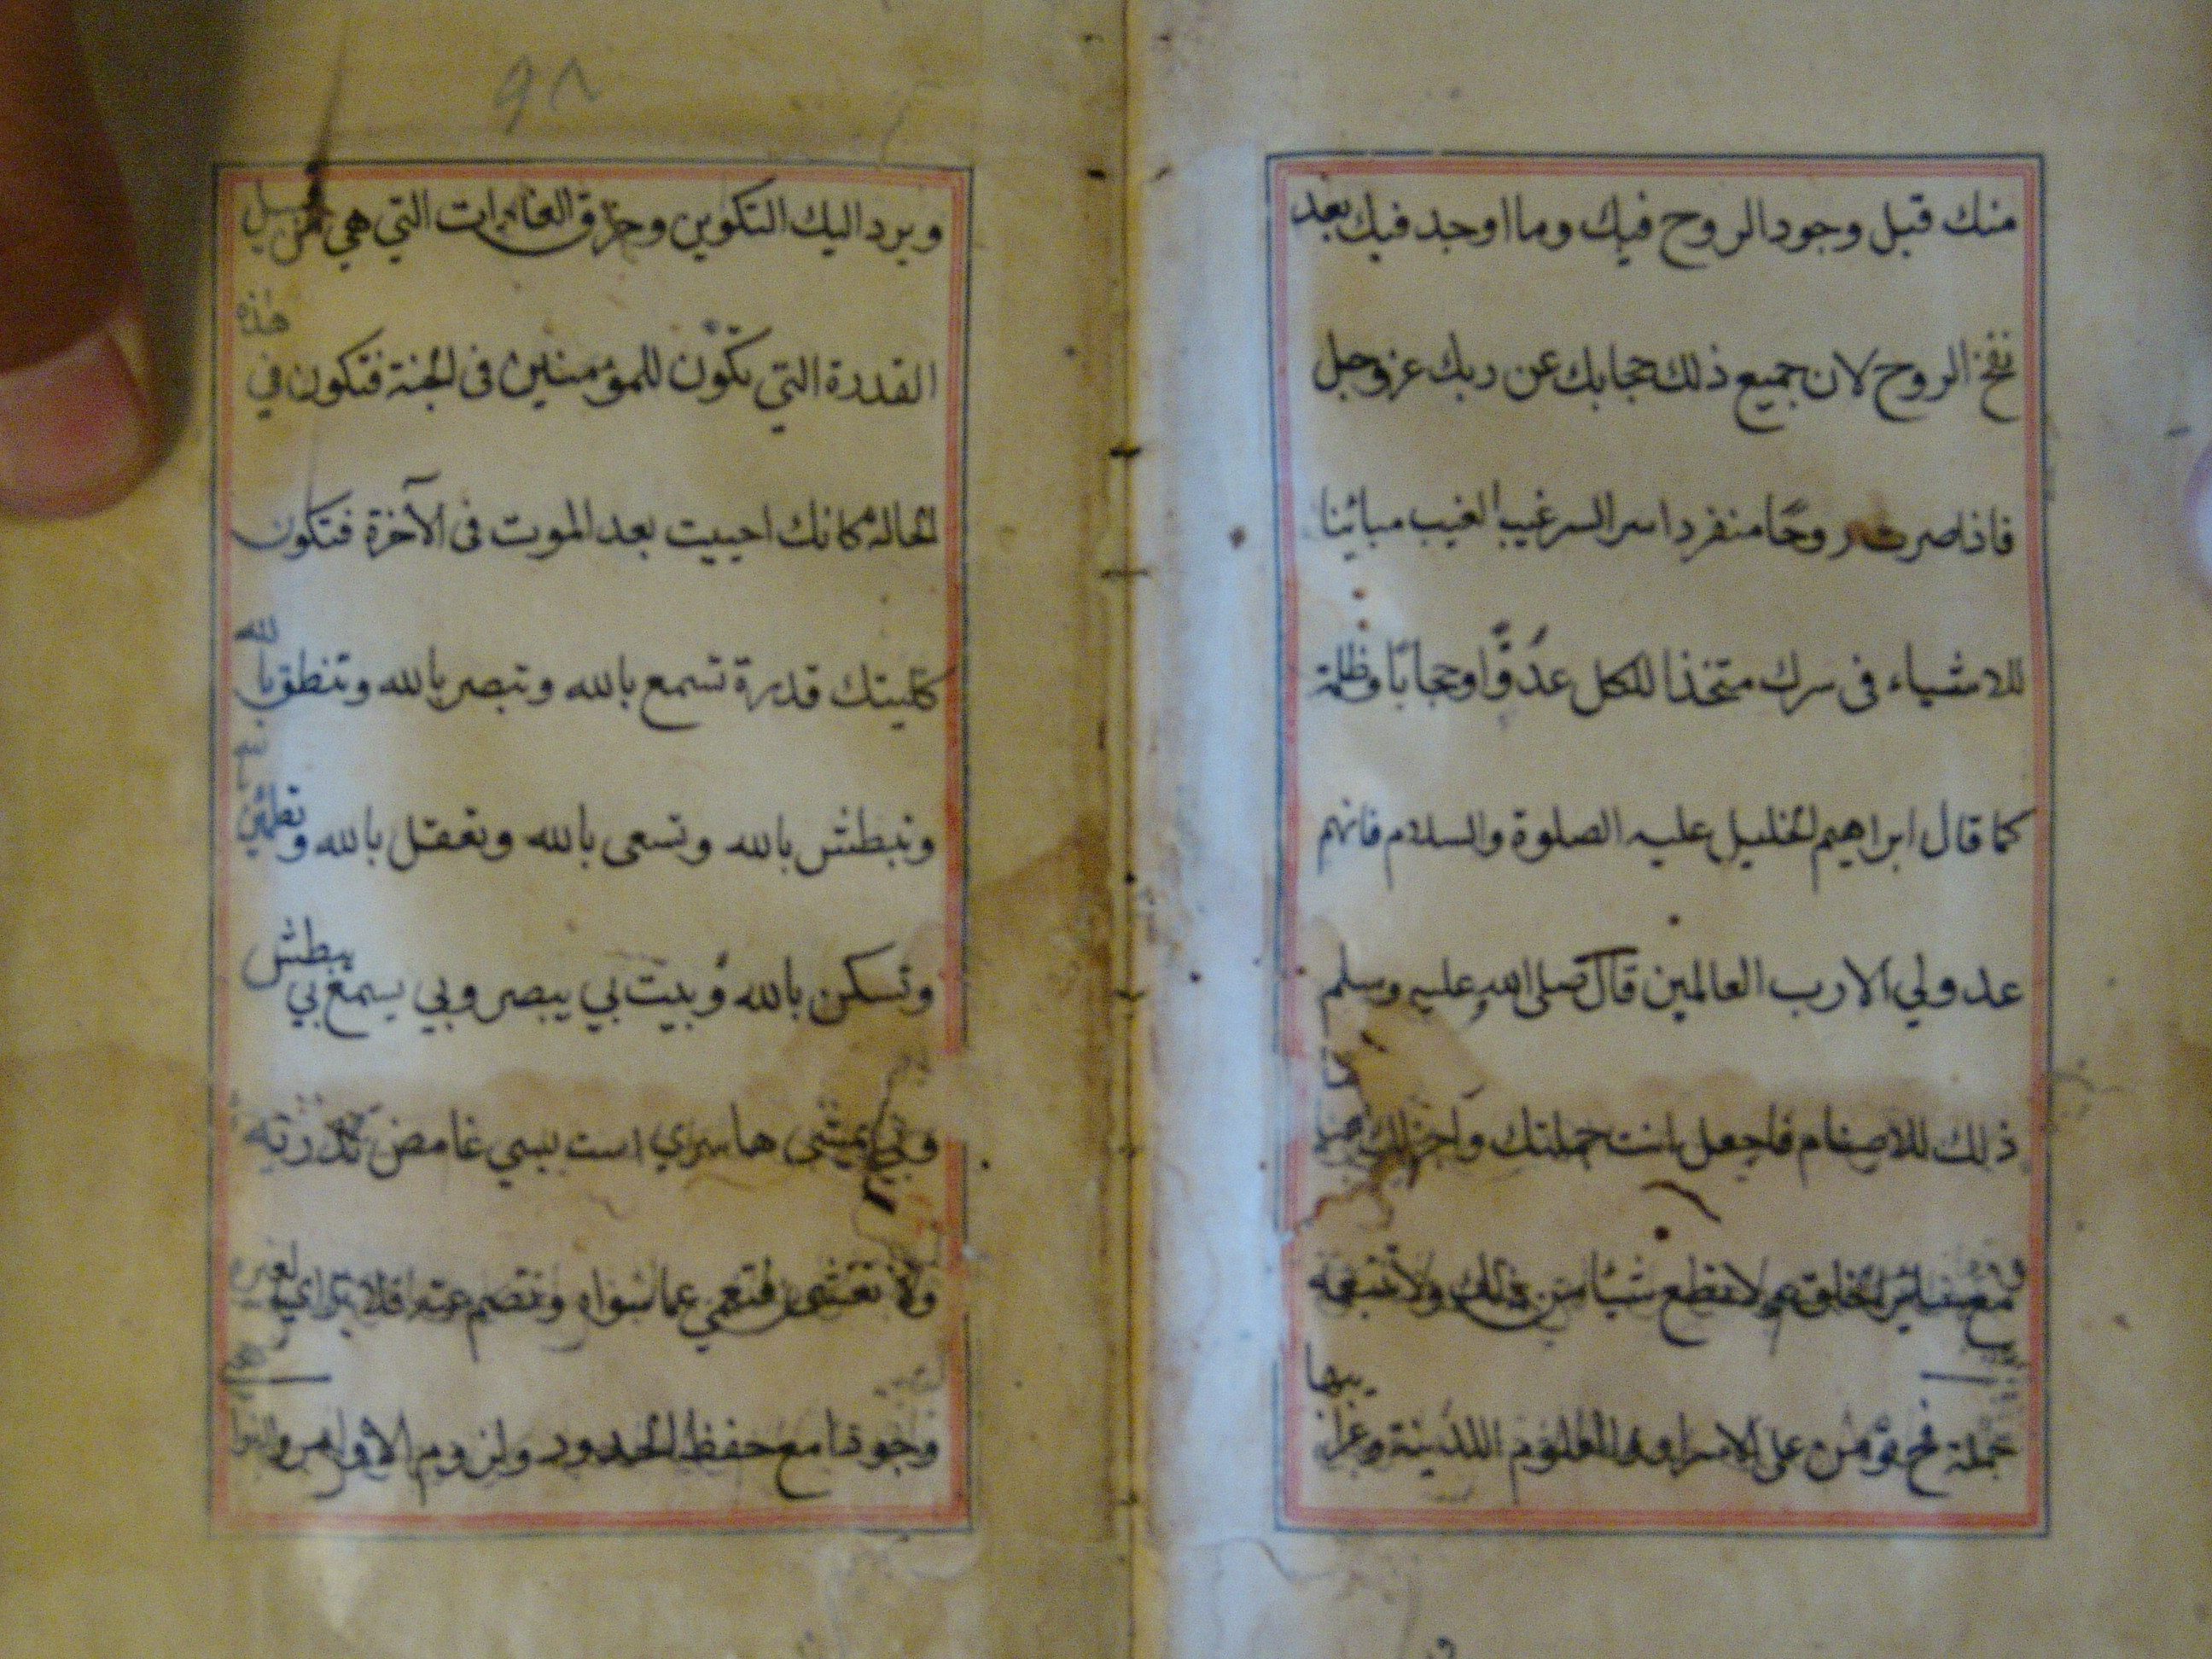 منك قبل وجود الروح فيك وما اوجد فيك بعد
نفخ الروح لان جميع ذلك حجابك عن ربك عز وجل
فاذا صرت روحًا منفردا سر السر غيب الغيب مبائنا
للاشياء فى سرك متخذا للكل عدوًّا وحجابًا وظلمة
كما قال ابراهيم الخليل عليه الصلوة والسلام فانهم
عدو لي الا رب العالمين قال صلى الله عليه وسلم
ذلك للاصنام فاجعل انت جملتك واجزائك
مع سائر الخلق ولا تطع شيئا من ذلك ولا تتبعه
جملة فح تؤمن على الاسرار والعلوم اللدنية وغرا
ئبها
٩٨
ويرد اليك التكوين وخرق العادات التي هي من قبيل
القدرة التي تكون للمؤمنين فى الجنة فتكون في هذه
الحالة كانك احييت بعد الموت فى الآخرة فتكون
كليتك قدرة تسمع بالله وتبصر بالله وتنطق بالله
وتبطش بالله وتسعى بالله وتعقل بالله وتطمئن بالله
وتسكن بالله وبيت بي يبصر وبي يسمع بي يبطش
وبي يمشى ها سري است ببسي غامض
فتعمي عما سواه وتصم عنه فلا ترى لغيره
وجودا مع حفظ الحدود ولزوم الاوامر والنوا